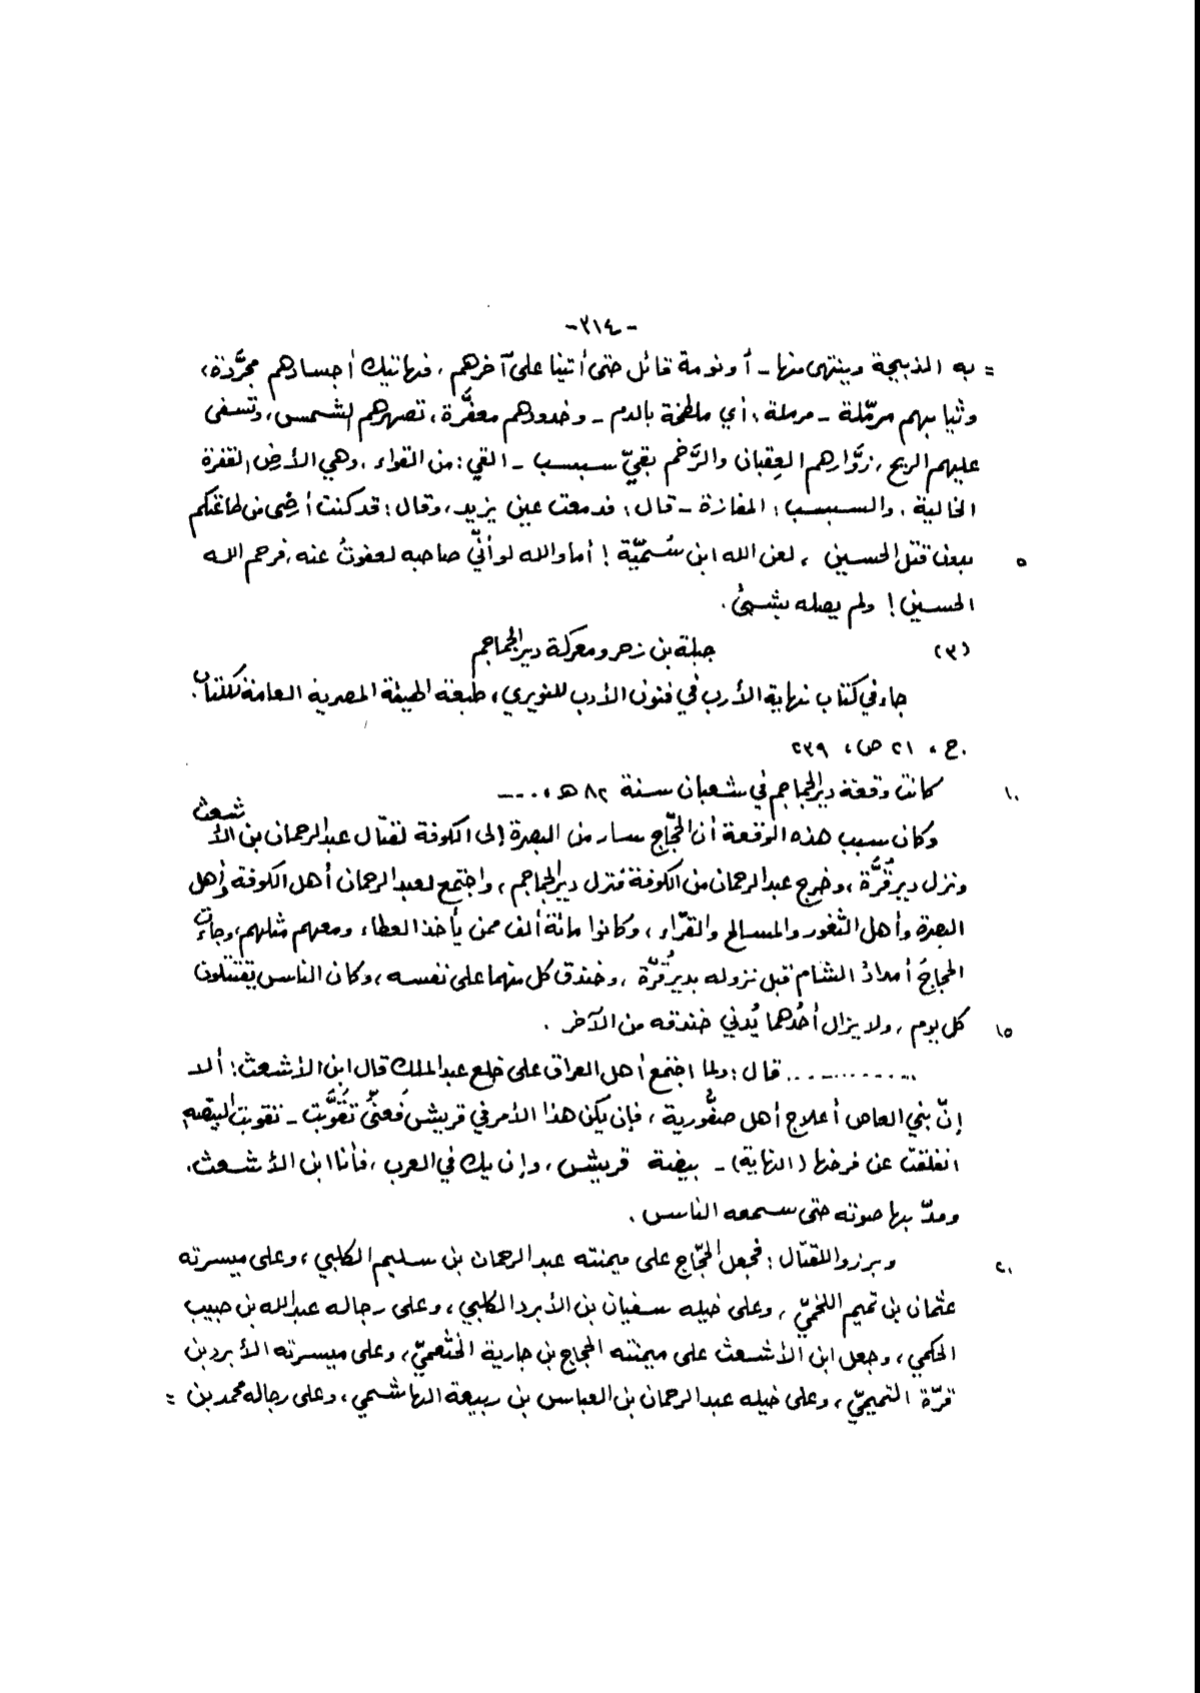 -٣١٤-
= به الذبيحة وينتهى منها - أو نومة قائل حتى أتينا على آخرهم ، فهاتيك أجسادهم مجرَّدة ،
وثيابهم مرمّلة - مرملة : أي ملطخة بالدم - وخدودهم معفَّرة ، تصهرهم الشمس ، وتسفى
عليهم الريح ، زوَّارهم العِقبان والرَّخم بقيّ سبسب - القي : من القواء . وهي الأرض القفرة
الخالية . والسبسب : المفازة - قال : فدمعت عين يزيد ، وقال : قد كنت أرضى من طاعتكم
٥ بدون قتل الحسين ، لعن الله ابن سُميّة ! أما والله لو أنّي صاحبه لعفوتُ عنه ، فرحم الله
الحسين ! ولم يصله بشيءٍ .
(٣) جبلة بن زحر ومعركة دير الجماجم
جاء في كتاب نهاية الأرب في فنون الأدب للنويري ، طبعة الهيئة المصرية العامة للكتاب .
ج ، ٢١ ص ، ٢٣٩
١٠ كانت وقعة دير الجماجم في شعبان سنة ٨٢ هـ ، ....
وكان سبب هذه الوقعة أن الحجّاج سار من البصرة إلى الكوفة لقتال عبد الرحمان بن الأشعث
ونزل دير قُرَّة ، وخرج عبد الرحمان من الكوفة فنزل دير الجماجم ، واجتمع لعبد الرحمان أهل الكوفة وأهل
البصرة وأهل الثغور والمسالح والقرّاء ، وكانوا مائة ألف ممن يأخذ العطاء ومعهم مثلهم ، وجاءت
الحجاجَ أمدادُ الشام قبل نزوله بدير قُرّة ، وخندق كل منهما على نفسه ، وكان الناس يقتتلون
١٥ كل يوم ، ولا يزال أحدُهما يُدني خندقه من الآخر .
............ قال : ولما اجتمع أهل العراق على خلع عبد الملك قال ابن الأشعث : ألا
إنّ بني العاص أعلاج أهل صفُّورية ، فإن يكن هذا الأمر في قريش فعنّي تَقَوَّبت - تقوبت البيضة
انفلقت عن فرخها (النهاية) - بيضة قريش ، وإن يك في العرب ، فأنا ابن الأشعث ،
ومدّ بها صوته حتى سمعه الناس .
٢١ وبرزوا للقتال : فجعل الحجّاج على ميمنته عبد الرحمان بن سليم الكلبي ، وعلى ميسرته
عثمان بن تميم اللخميّ ، وعلى خيله سفيان بن الأبرد الكلبي ، وعلى رجاله عبد الله بن حبيب
الحكمي ، وجعل ابن الأشعث على ميمنته الحجاج بن جارية الخثعميّ ، وعلى ميسرته الأبرد بن
قرّة التميميّ ، وعلى خيله عبد الرحمان بن العباس بن ربيعة الهاشمي ، وعلى رجاله محمد بن =